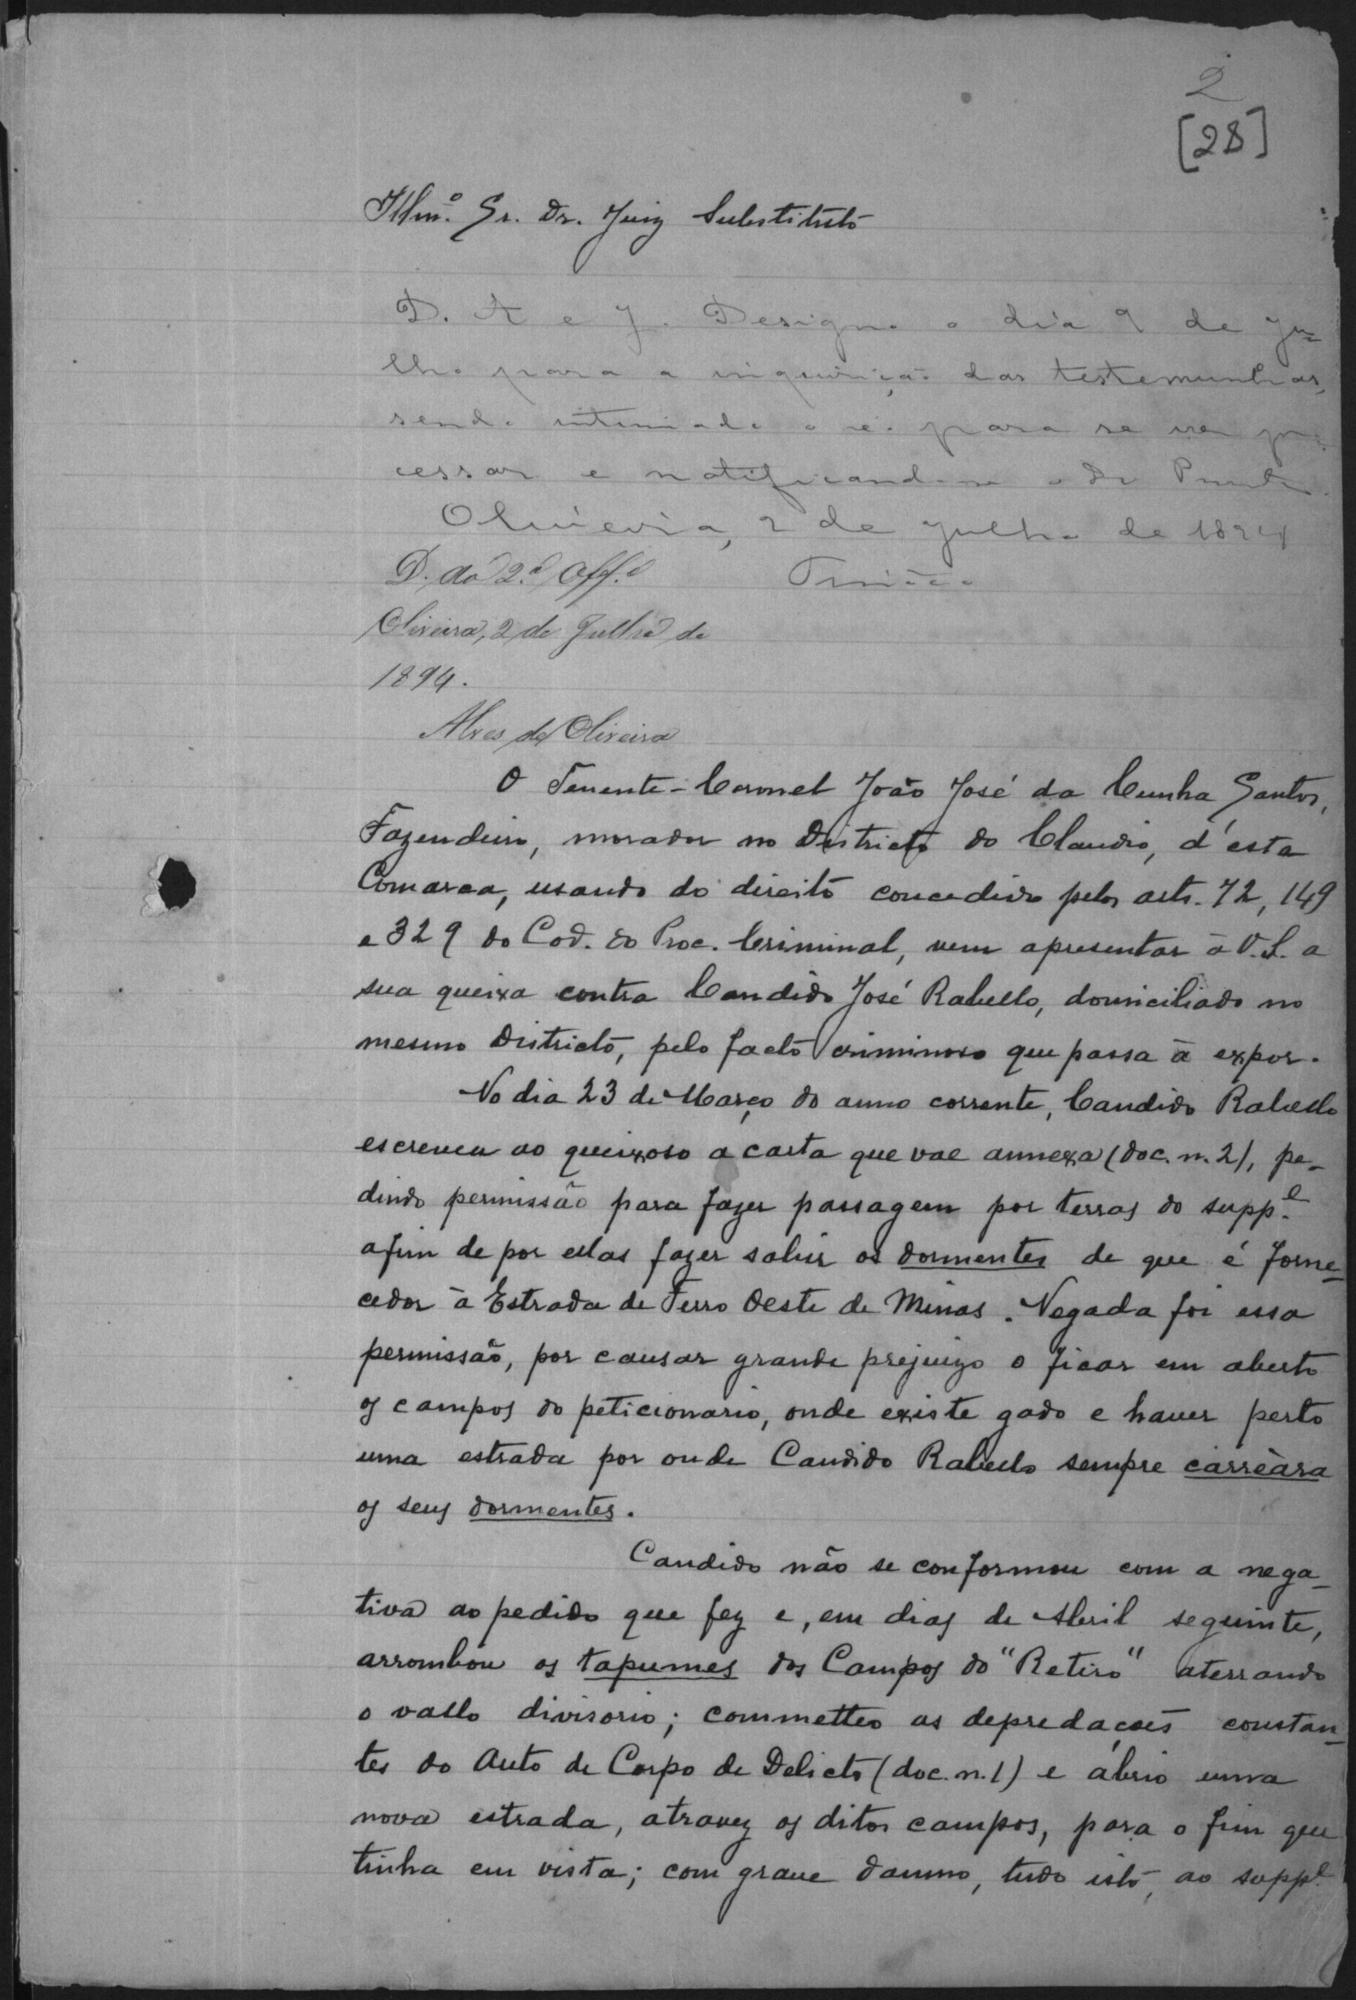 2
[28]
Illmº. Sr. Dr. Juiz Substituto
D. A e J. Designo o dia 9 de Ju-
lho para a inquirição das testemunhas,
sendo intimado o réo para se ver pro-
cessar e notificando-se o Dr Promtor.
Oliveira, 2 de Julho de 1894
D. ao 2.º Off.º
Oliveira, 2 de Julho de
1894.
Alves de Oliveira
O Tenente-Coronel João José da Cunha Santos,
Fazendeiro, morador no Districto do Claudio, d'esta
Comarca, usando do direito concedido pelos arts. 72, 149
e 329 do Cod. do Proc. Criminal, vem apresentar à V.S. a
sua queixa contra Candido José Rabello, domiciliado no
mesmo Districto, pelo facto criminoso que passa à expor.
No dia 23 de Março do anno corrente, Candido Rabello
escreveu ao queixoso a carta que vae annexa (doc. n. 2), pe-
dindo permissão para fazer passagem por terras do supp.e
afim de por ellas fazer sahir os dormentes de que é forne-
cedor à Estrada de Ferro Oeste de Minas. Negada foi essa
permissão, por causar grande prejuizo o ficar em aberto
os campos do peticionario, onde existe gado e haver perto
uma estrada por onde Candido Rabello sempre carreàra
os seus dormentes.
Candido não se conformou com a nega-
tiva ao pedido que fez e, em dias de Abril seguinte,
arrombou os tapumes dos Campos do "Retiro" aterrando
o vallo divisorio; commetteo as depredações constan-
tes do Auto de Corpo de Delicto (doc. n. 1) e abrio uma
nova estrada, atravez os ditos campos, para o fim que
tinha em vista; com grave damno, tudo isto, ao supp.e